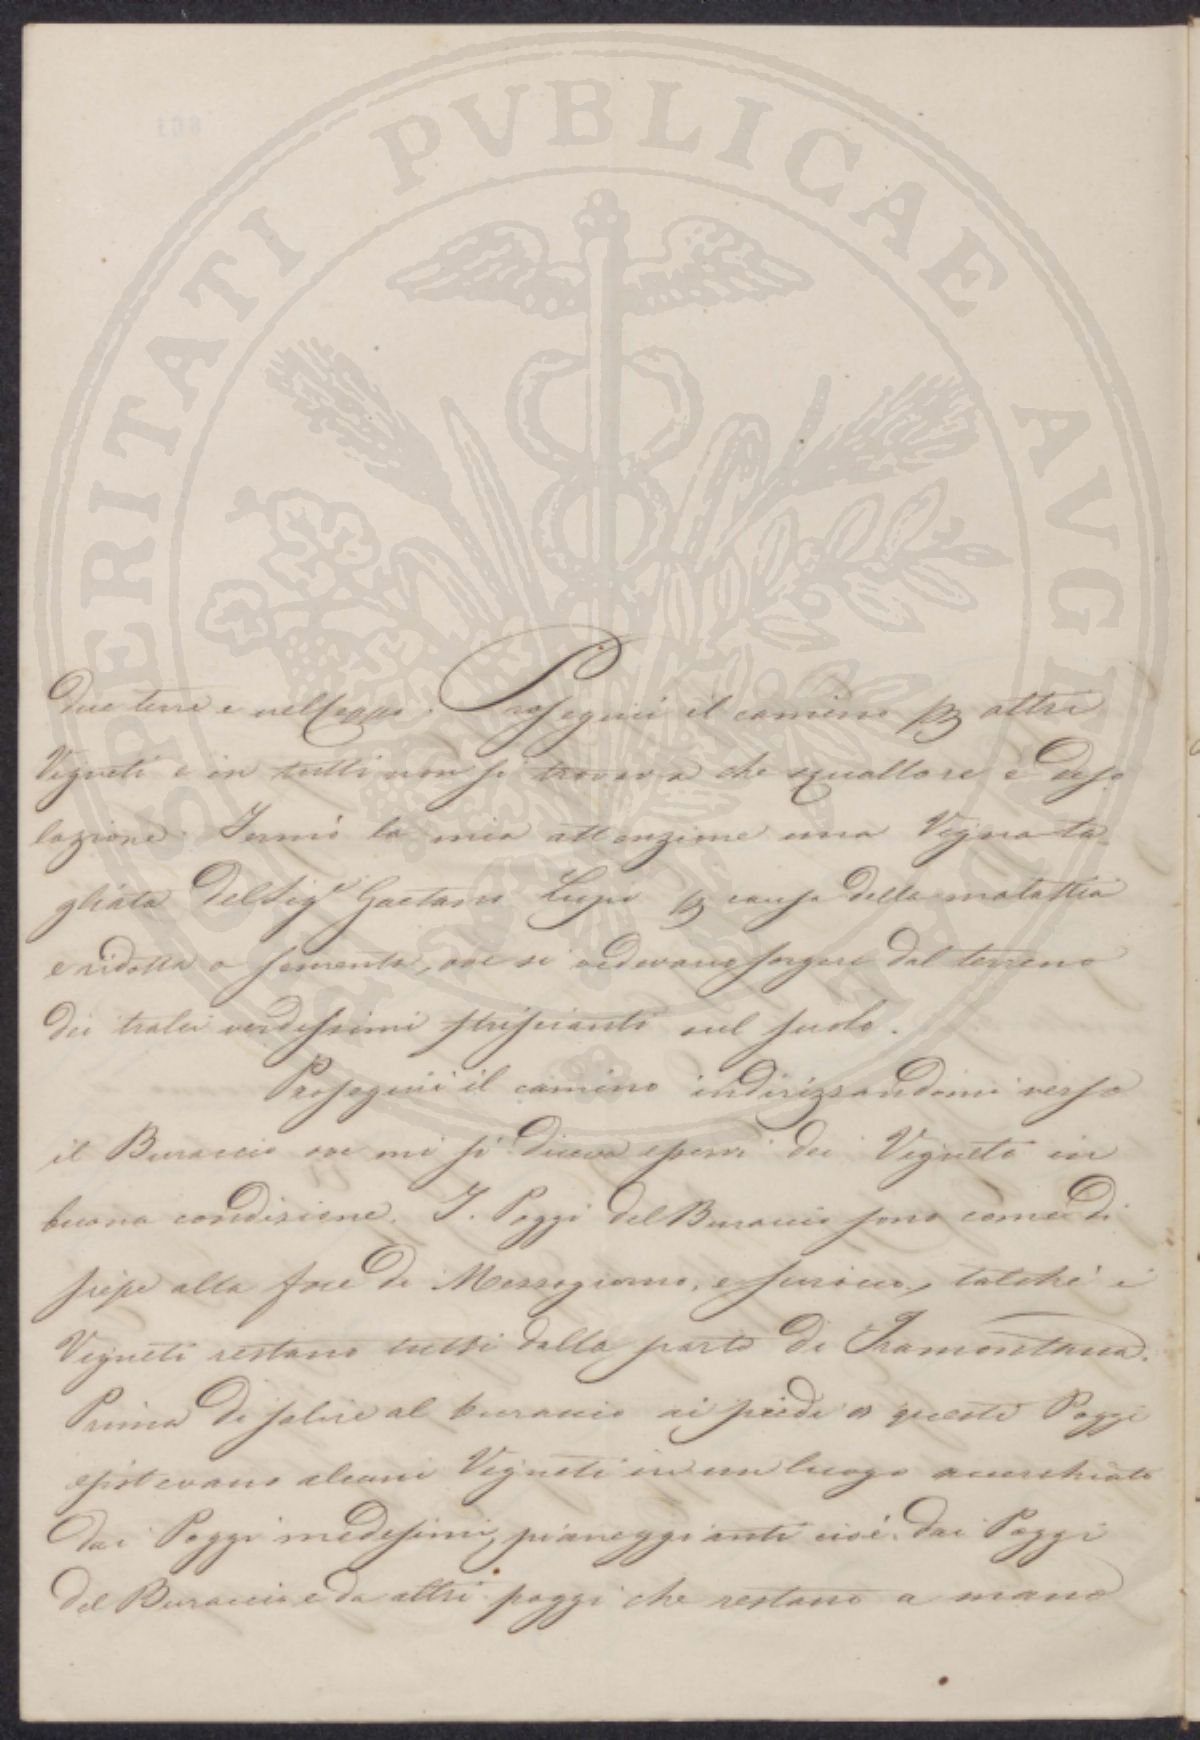 PROSPERITATI PVBLICAE AVGENDAE
due terre e nel Ceppo. Proseguii il camino per altri
Vigneti e in tutti non si trovava che squallore e deso
lazione. Fermò la mia attenzione una Vigna ta
gliata del Sigr Gaetano Lupi per causa della malattia
e ridotta a sementa, ove si vedevano sorgere dal terreno
dei tralci verdissimi striscianti sul suolo.
Proseguii il camino indirizzandomi verso
il Buraccio ove mi si diceva esservi dei Vigneti in
buona condizione. I Poggi del Buraccio sono come di
siepe alla foce di Mezzogiorno, e scirocco, talchè i
Vigneti restano tutti dalla parte di Tramontana.
Prima di salire al buraccio ai piedi a questi Poggi
esistevano alcuni Vigneti in un luogo accerchiato
dai Poggi medesimi, pianeggianti cioè dai Poggi
del Buraccio e da altri poggi che restano a mano